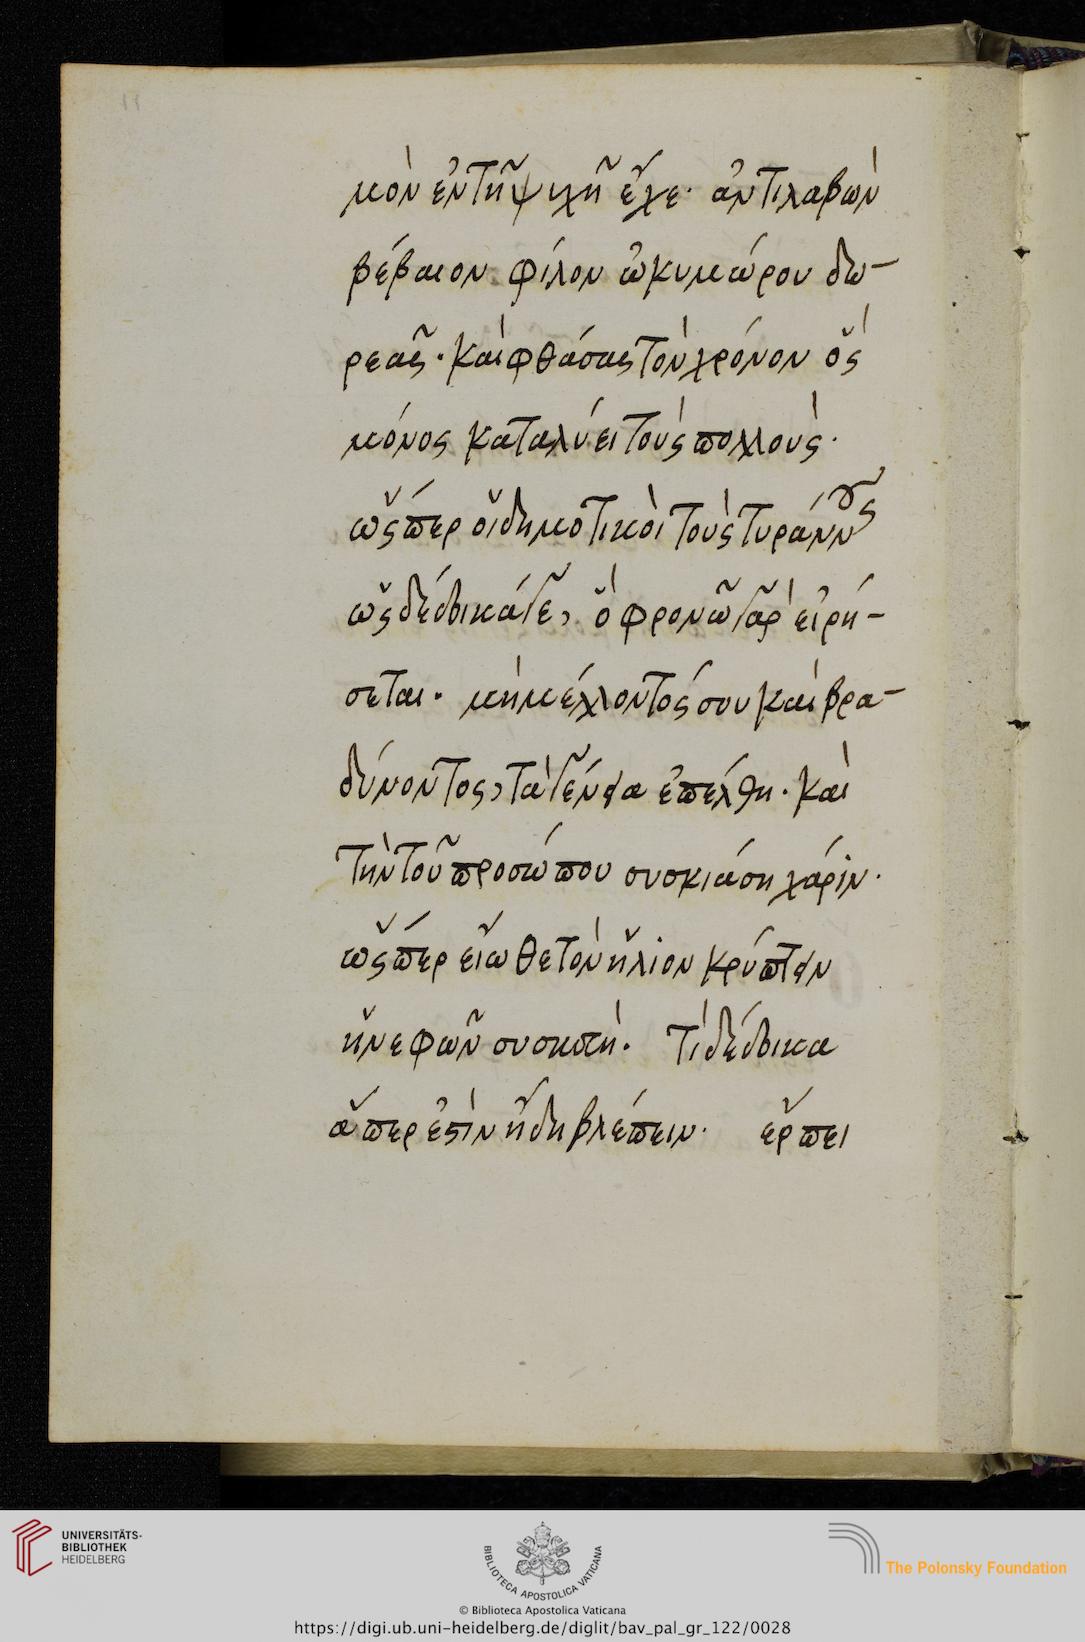 11
μον ἐν τῇ ψυχῇ ἔχε· ἀντιλαβὼν
βέβαιον φίλον ὠκυμώρου δω-
ρεᾶς· καὶ φθάσας τὸν χρόνον ὃς
μόνος καταλύει τοὺς πολλοὺς·
ὥσπερ οἱ δημοτικοὶ τοὺς τυράννους
ὡς δέδοικά γε, ὃ φρονῶ γὰρ εἰρή-
σεται· μὴ μέλλοντός σου καὶ βρα-
δύνοντος, τὰ γένεια ἐπέλθῃ· καὶ
τὴν τοῦ προσώπου συσκιάσῃ χάριν·
ὥσπερ εἴωθε τὸν ἥλιον κρύπτειν
ἡ νεφῶν συστροφή· τί δέδοικα
ἅπερ ἐστὶν ἤδη βλέπειν· ἕρπει
UNIVERSITÄTS-
BIBLIOTHEK
HEIDELBERG
BIBLIOTECA APOSTOLICA VATICANA
The Polonsky Foundation
© Biblioteca Apostolica Vaticana
https://digi.ub.uni-heidelberg.de/diglit/bav_pal_gr_122/0028